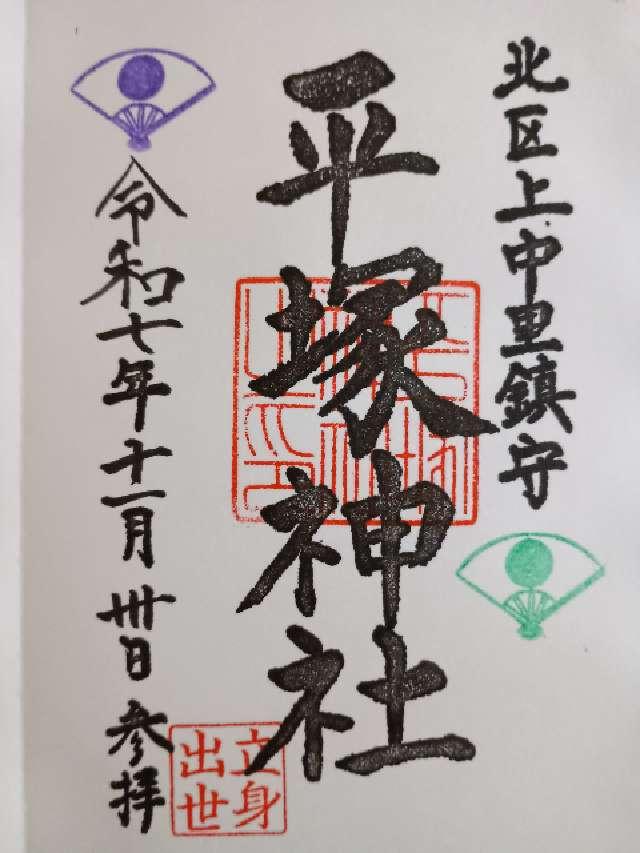 北区上中里鎮守
平塚神社
令和七年十一月卅日 参拝
立身
出世